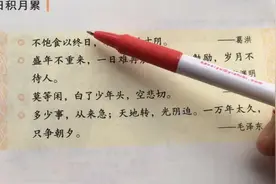 日积月累
不饱食以终日，　　　　　大阴。——葛洪
盛年不重来，一日难再　　　　勉励，岁月不
待人。　　　　　　　　　　　　　　明
莫等闲，白了少年头，空悲切。
多少事，从来急；天地转，光阴迫。一万年太久，
只争朝夕。　　　　　　　　　　——毛泽东